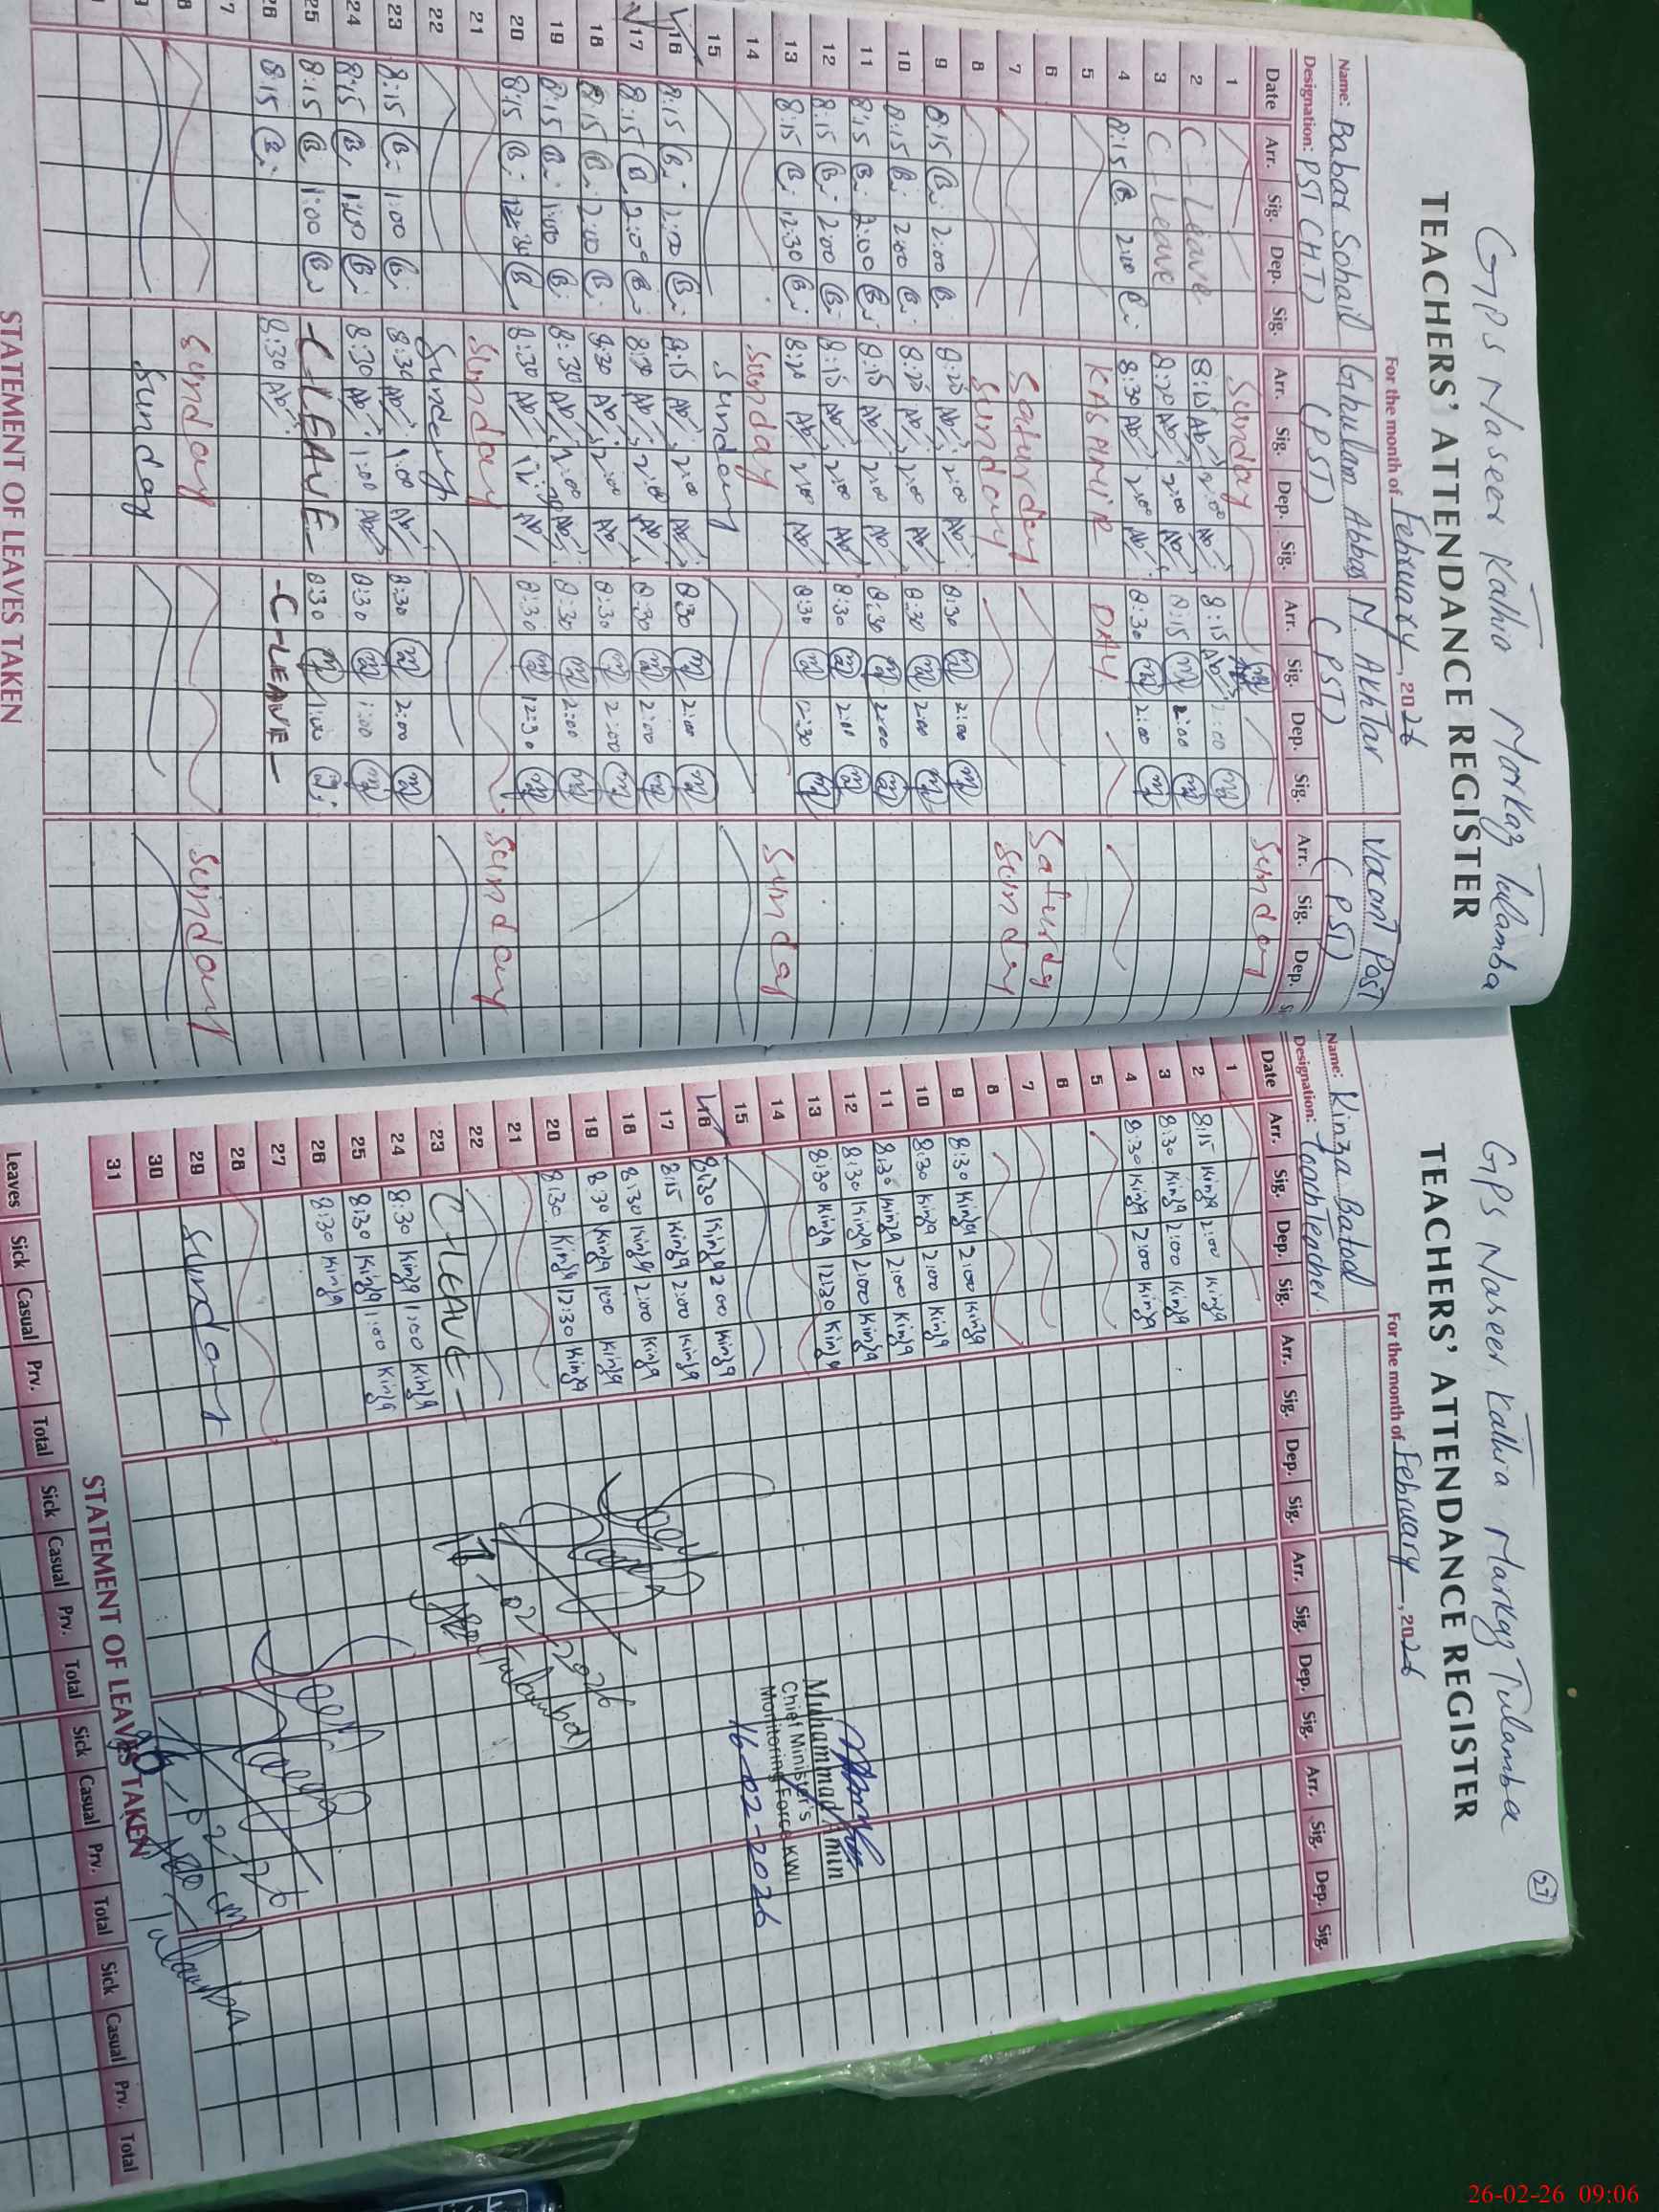 GPS Naseer Kathia Markaz Tulamba
TEACHERS' ATTENDANCE REGISTER
For the month of February, 2026
Name: Babar Sohail Ghulam Abbas M. Akhtar Vacant Post
Designation: PST (H.T) (PST) (PST) (PST)
Date Arr. Sig. Dep. Sig. Arr. Sig. Dep. Sig. Arr. Sig. Dep. Sig. Arr. Sig. Dep.
1 Sunday Sunday
2 C-Leave 8:15 2:00 8:15 2:00
3 C-Leave 8:20 2:00 8:15 2:00
4 8:15 2:00 8:30 2:00 8:30 2:00
5 KASHMIR DAY
6
7 Saturday Saturday
8 Sunday Sunday
9 8:15 2:00 8:20 2:00 8:30 2:00
10 8:15 2:00 8:20 2:00 8:30 2:00
11 8:15 2:00 8:15 2:00 8:30 2:00
12 8:15 2:00 8:15 2:00 8:30 2:00
13 8:15 12:30 8:20 2:00 8:30 12:30
14 Sunday Sunday
15 Sunday
16 8:15 2:00 8:15 2:00 8:30 2:00
17 8:15 2:00 8:30 2:00 8:30 2:00
18 8:15 2:00 8:30 2:00 8:30 2:00
19 8:15 1:00 8:30 2:00 8:30 2:00
20 8:15 8:30 8:30 12:30
21 Sunday Sunday
22 Sunday
23 8:15 1:00 8:30 1:00 8:30 2:00
24 8:15 1:00 8:30 1:00 8:30 1:00
25 8:15 1:00 -C-LEAVE- 8:30 1:00
26 8:15 8:30 -C-LEAVE-
7
8 Sunday Sunday
Sunday
STATEMENT OF LEAVES TAKEN
27
GPS Naseer Kathia Markaz Tulamba
TEACHERS' ATTENDANCE REGISTER
For the month of February, 2026
Name: Kinza Batool
Designation: Teacher
Date Arr. Sig. Dep. Sig. Arr. Sig. Dep. Sig. Arr. Sig. Dep. Sig. Arr. Sig. Dep. Sig.
1
2 8:15 Kinza 2:00 Kinza
3 8:30 Kinza 2:00 Kinza
4 8:30 Kinza 2:00 Kinza
5
6
7
8
9 8:30 Kinza 2:00 Kinza
10 8:30 Kinza 2:00 Kinza
11 8:30 Kinza 2:00 Kinza
12 8:30 Kinza 2:00 Kinza
13 8:30 Kinza 12:30 Kinza
14
15
16 8:30 Kinza 2:00 Kinza
17 8:15 Kinza 2:00 Kinza
18 8:30 Kinza 2:00 Kinza
19 8:30 Kinza 1:00 Kinza
20 8:30 Kinza 12:30 Kinza
21
22
23 C-LEAVE-
24 8:30 Kinza 1:00 Kinza
25 8:30 Kinza 1:00 Kinza
26 8:30 Kinza
27
28
29 Sunday
30
31
Muhammad Amin
Chief Minister's
Monitoring Force KWL
16-02-2026
/02/2026
Tulamba
Tulamba
STATEMENT OF LEAVES TAKEN
Leaves Sick Casual Prv. Total Sick Casual Prv. Total Sick Casual Prv. Total Sick Casual Prv. Total
26-02-26 09:06